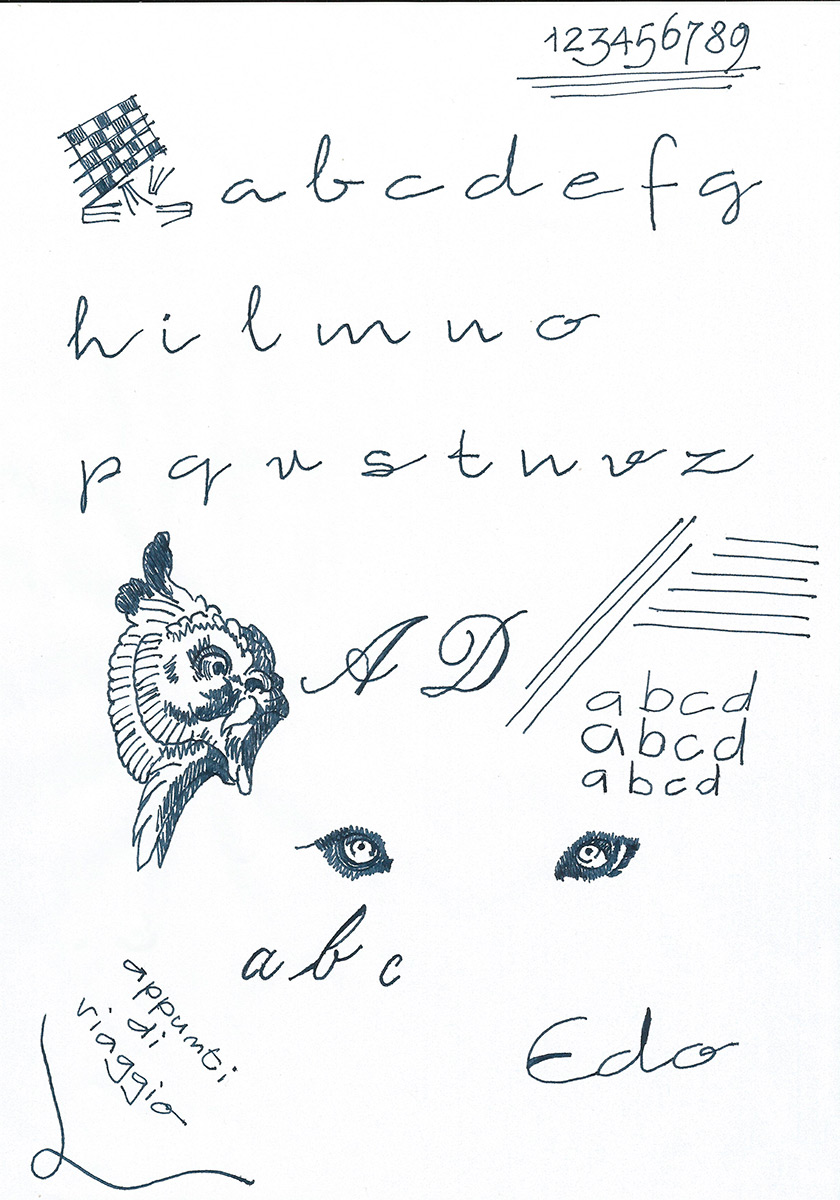 123456789
a b c d e f g
h i l m n o
p q r s t u v z
A D
a b c d
a b c d
a b c d
a b c
appunti
di
viaggio
Edo